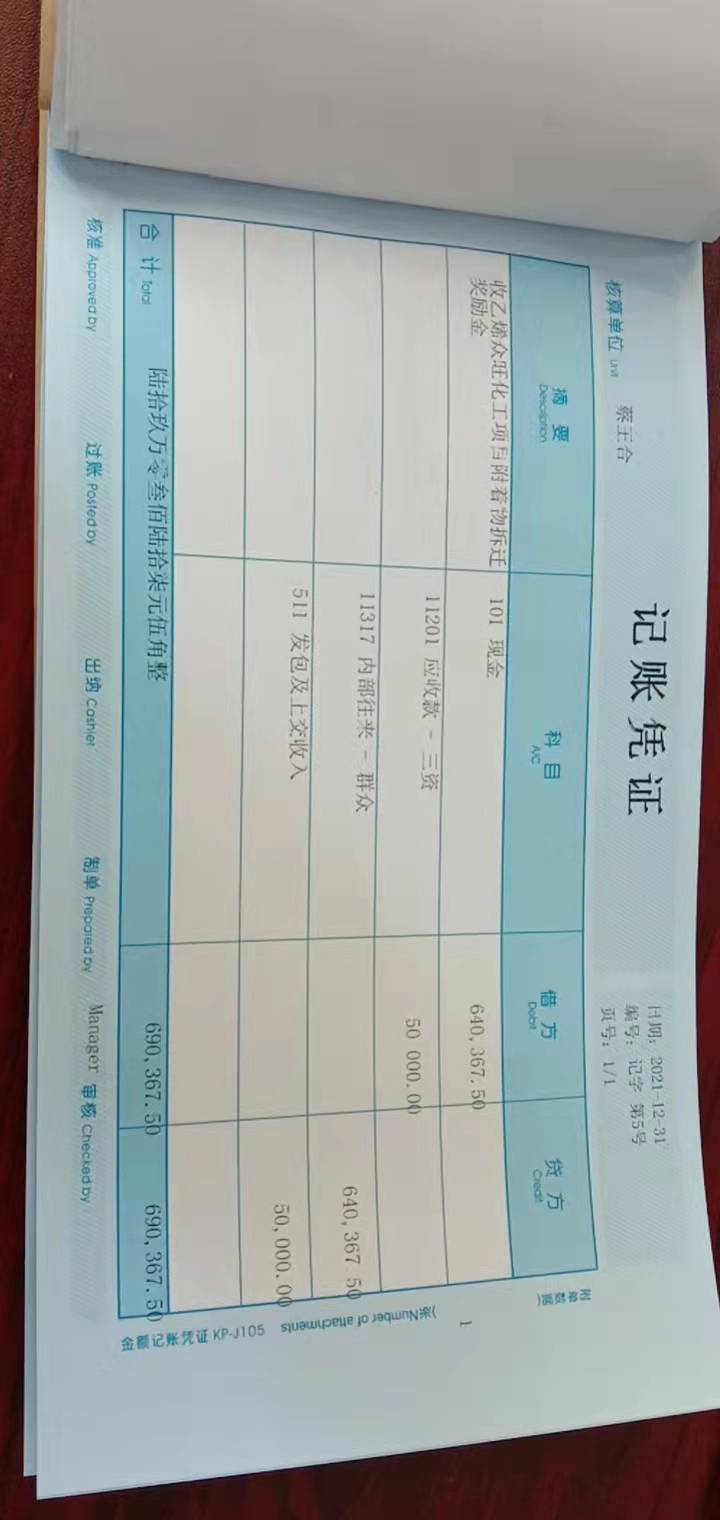 记账凭证
日期：2021-12-31
编号：记字 第5号
页号：1/1
核算单位 Unit 蔡王合
摘 要 Description
科 目 A/C
借 方 Debit
贷 方 Credit
收乙烯众旺化工项目附着物拆迁奖励金
101 现金 640,367.50
11201 应收款 - 三资 50 000.00
11317 内部往来 - 群众 640,367 50
511 发包及上交收入 50,000.00
合 计 Total 陆拾玖万零叁佰陆拾柒元伍角整 690,367.50 690,367.50
附单数据(
1
张)Number of attachments
金额记账凭证 KP-J105
核准 Approved by 过账 Posted by 出纳 Cashier 制单 Prepared by Manager 审核 Checked by